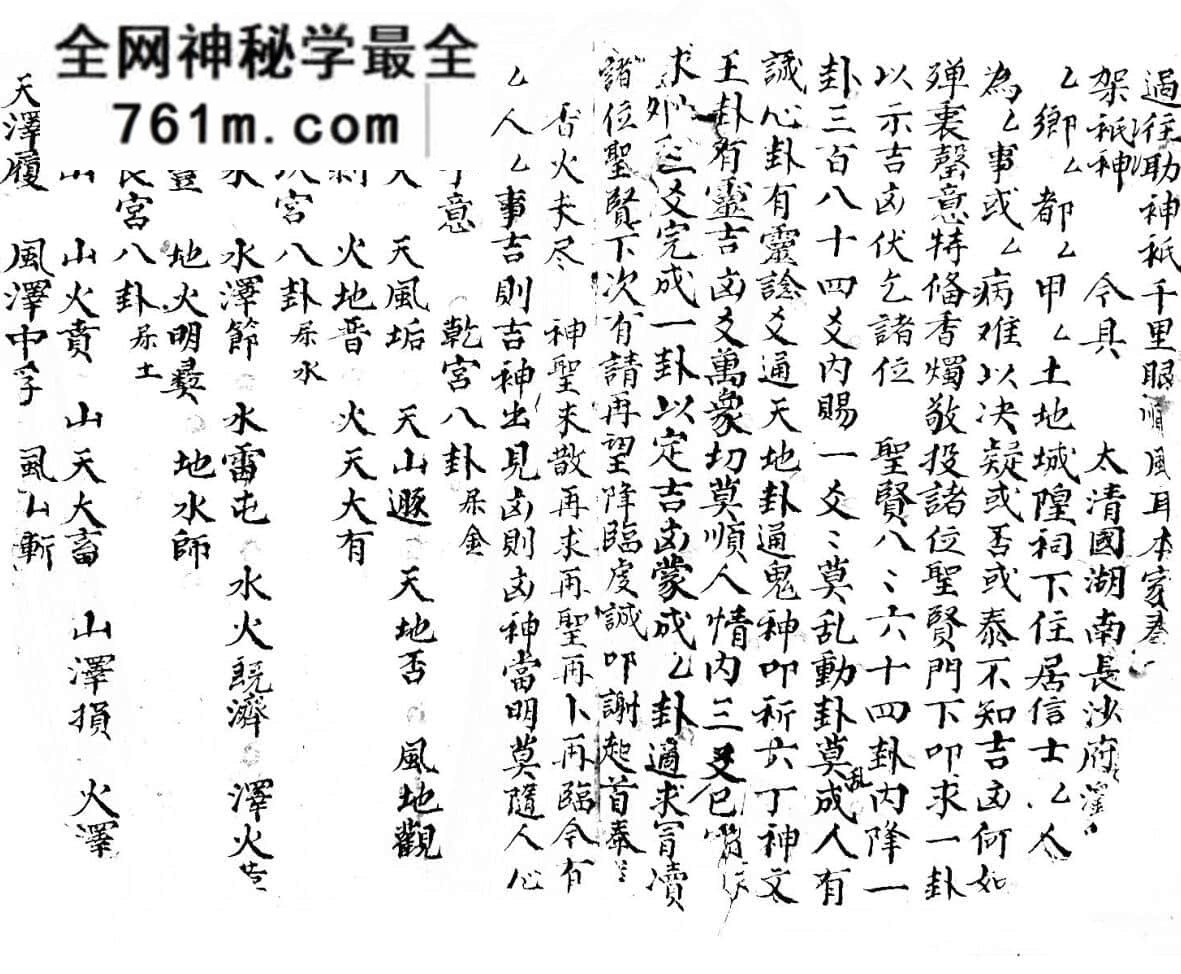 全网神秘学最全
761m.com
過往助神祇千里眼順風耳本家
架祇神 今具 太清國湖南長沙府
乙鄉乙都乙甲乙土地城隍祠下住居信士乙人
為乙事或乙病难以决疑或否或泰不知吉凶何如
殫裏罄意特俻香燭敬投諸位聖賢門下叩求一卦
以示吉凶伏乞諸位 聖賢八〻六十四卦内降一
卦三百八十四爻内賜一爻〻莫乱動卦莫乱成人有
誠心卦有靈諗爻通天地卦通鬼神叩祈六丁神文
王卦有靈吉凶爻萬象切莫順人情内三爻已
求外三爻完成一卦以定吉凶蒙成乙卦適求冐瀆
諸位聖賢下次有請再望降臨虔誠叩謝起首奉
香火未尽 神聖未散再求再聖再卜再臨今有
乙人乙事吉則吉神出見凶則凶神當明莫隨人心
意 乾宮八卦屬金
天風垢 天山遯 天地否 風地觀
火地晋 火天大有
宮八卦屬水
水澤節 水雷屯 水火既濟 澤火
地火明彛 地水師
宮八卦屬土
山火賁 山天大畜 山澤損 火澤
天澤履 風澤中孚 風山漸